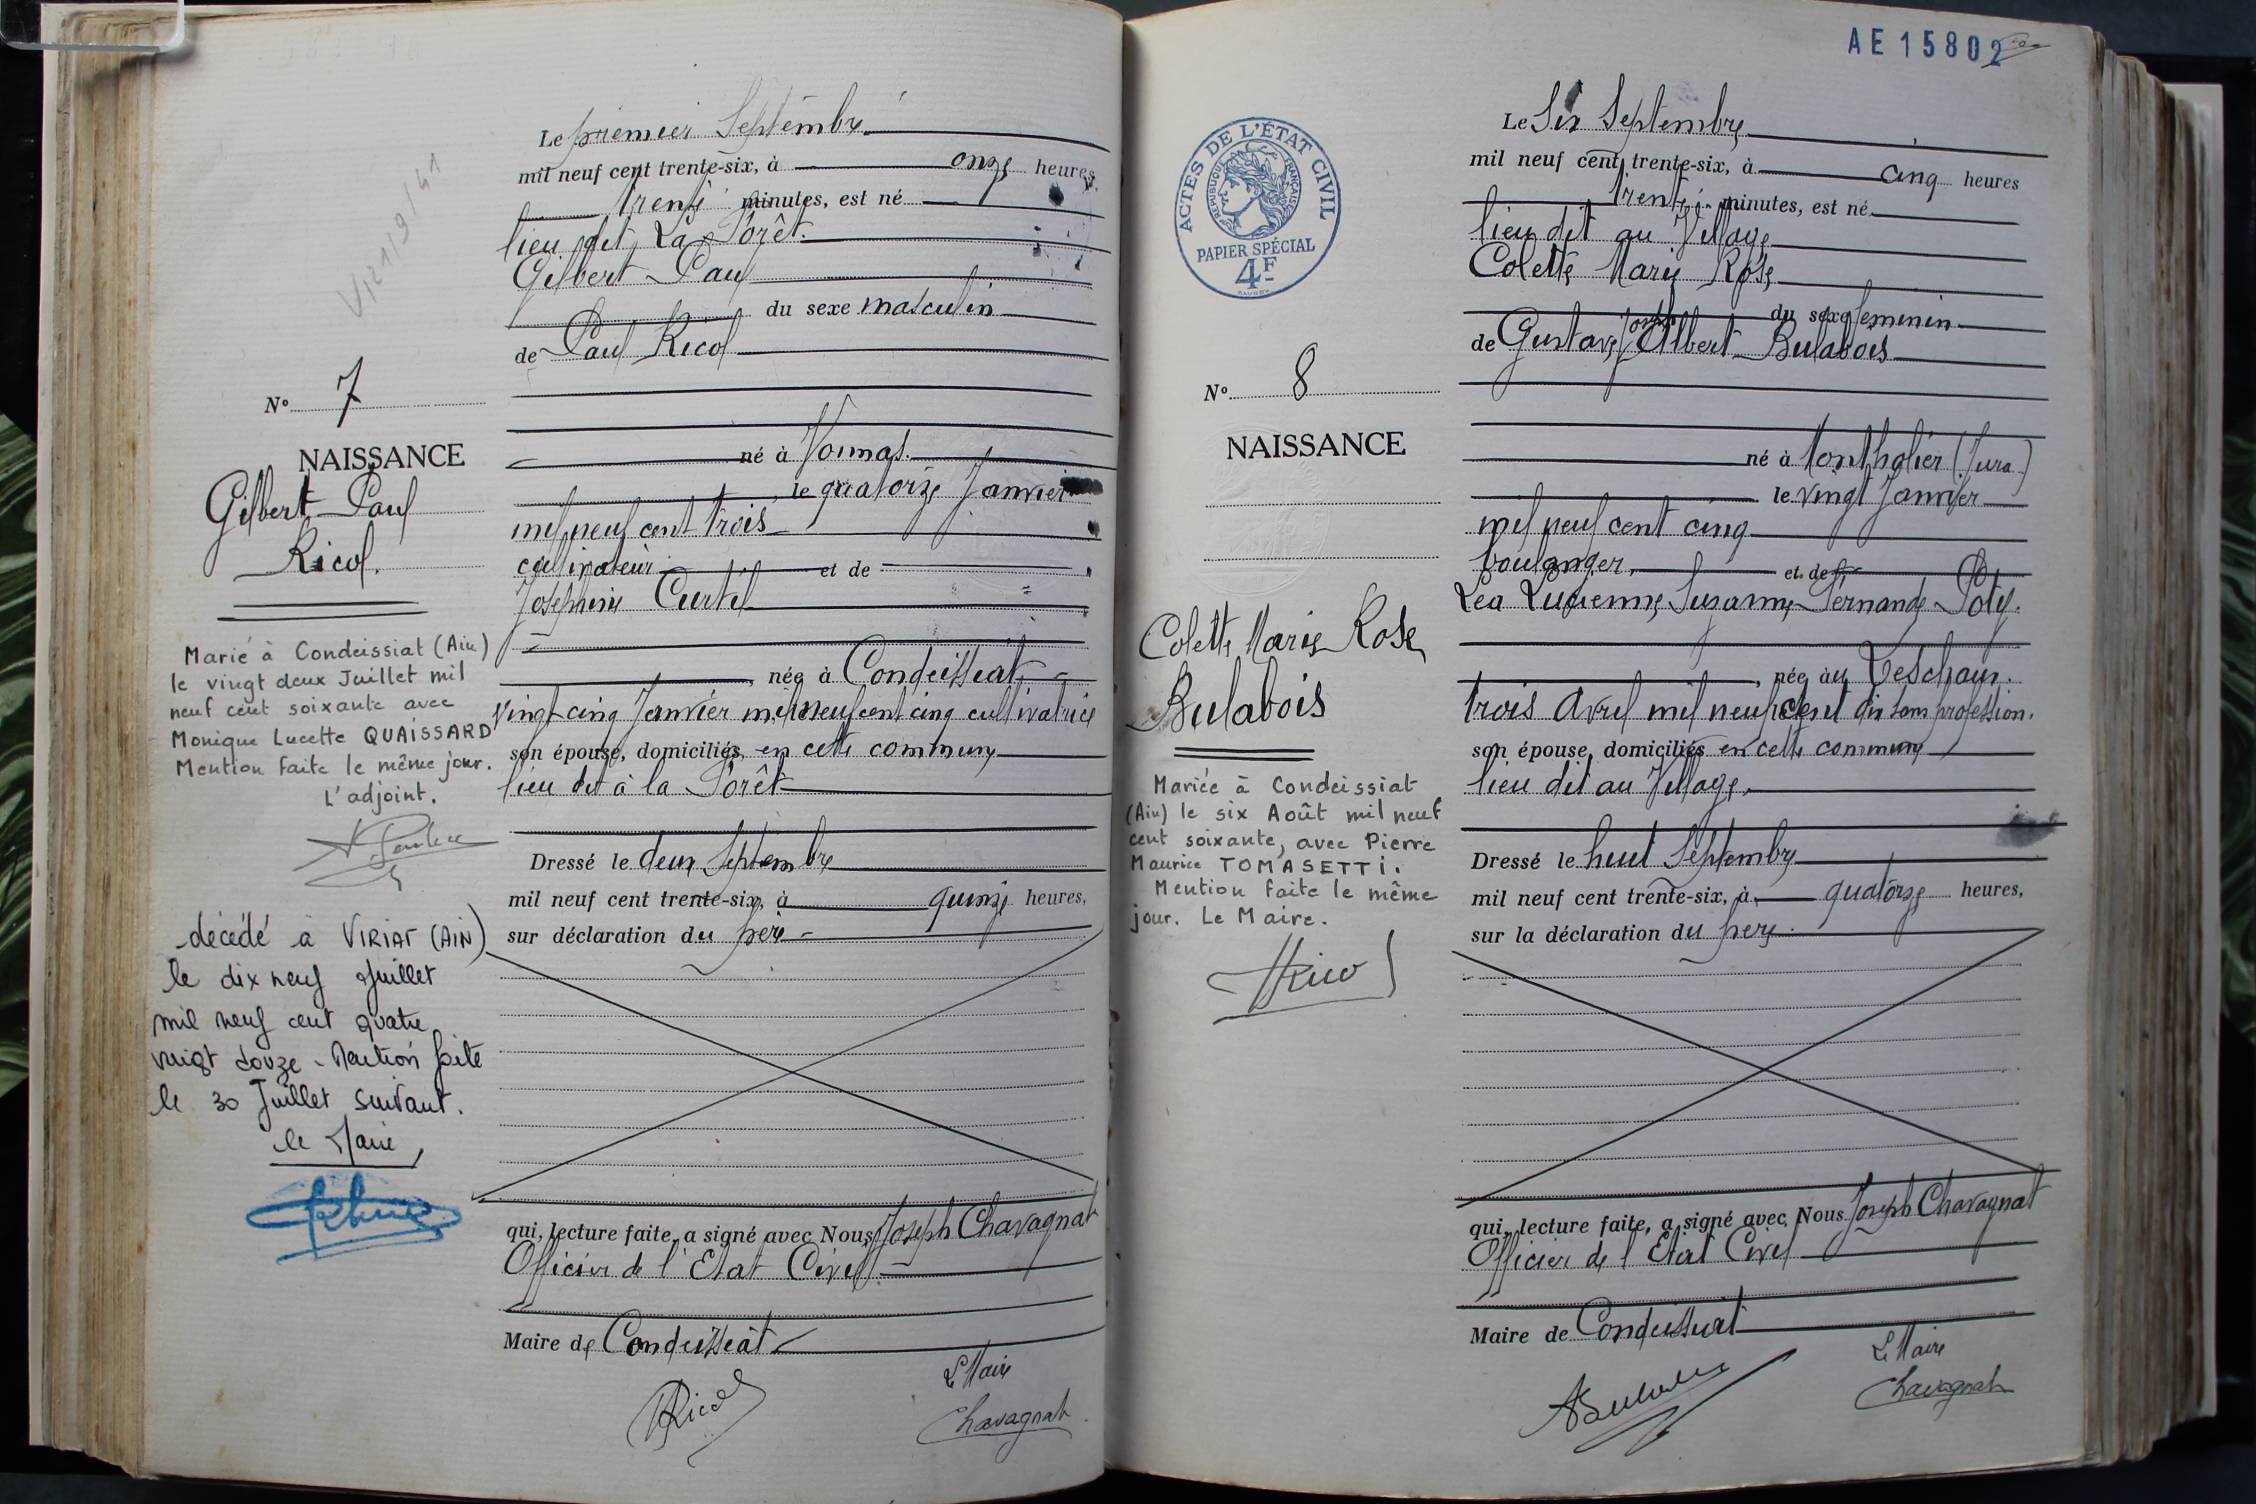 Le premier Septembre
mil neuf cent trente-six, à onze heures
trente minutes, est né
lieu dit La Forêt
Gilbert Paul
du sexe masculin
de Paul Ricol
N° 7
NAISSANCE
Gilbert Paul
Ricol.
né à Vonnas
, le quatorze Janvier
mil neuf cent trois
cultivateur et de
Joséphine Curtil
, née à Condeissiat
vingt cinq Janvier mil neuf cent cinq cultivatrice
son épouse, domiciliés en cette commune
lieu dit à la Forêt
Marié à Condeissiat (Ain)
le vingt deux Juillet mil
neuf cent soixante avec
Monique Lucette QUAISSARD
Mention faite le même jour.
L'adjoint.
Dressé le deux Septembre
mil neuf cent trente-six, à quinze heures,
sur déclaration du père
décédé à VIRIAT (AIN)
le dix neuf Juillet
mil neuf cent quatre
vingt douze - Mention faite
le 30 Juillet suivant.
le Maire,
qui, lecture faite, a signé avec Nous Joseph Chavagnat
Officier de l'Etat Civil
Maire de Condeissiat
Le Maire
Ricol
Chavagnat
AE 15802
Le Six Septembre
mil neuf cent trente-six, à cinq heures
trente minutes, est né
lieu dit au Village
Colette Marie Rose
du sexe féminin
de Gustave Joseph Albert Bulabois
ACTES DE L'ÉTAT CIVIL
REPUBLIQUE FRANÇAISE
PAPIER SPÉCIAL
4F
N° 8
NAISSANCE
né à Montholier (Jura)
le vingt Janvier
mil neuf cent cinq
boulanger, et de
Léa Lucienne Suzanne Fernande Poty.
, née au Deschaux.
trois Avril mil neuf cent dix sans profession.
son épouse, domiciliés en cette commune
lieu dit au Village,
Colette Marie Rose
Bulabois
Mariée à Condeissiat
(Ain) le six Août mil neuf
cent soixante, avec Pierre
Maurice TOMASETTI.
Mention faite le même
jour. Le Maire.
Dressé le huit Septembre
mil neuf cent trente-six, à quatorze heures,
sur la déclaration du père
qui, lecture faite, a signé avec Nous Joseph Chavagnat
Officier de l'Etat Civil
Maire de Condeissiat
Le Maire
Chavagnat